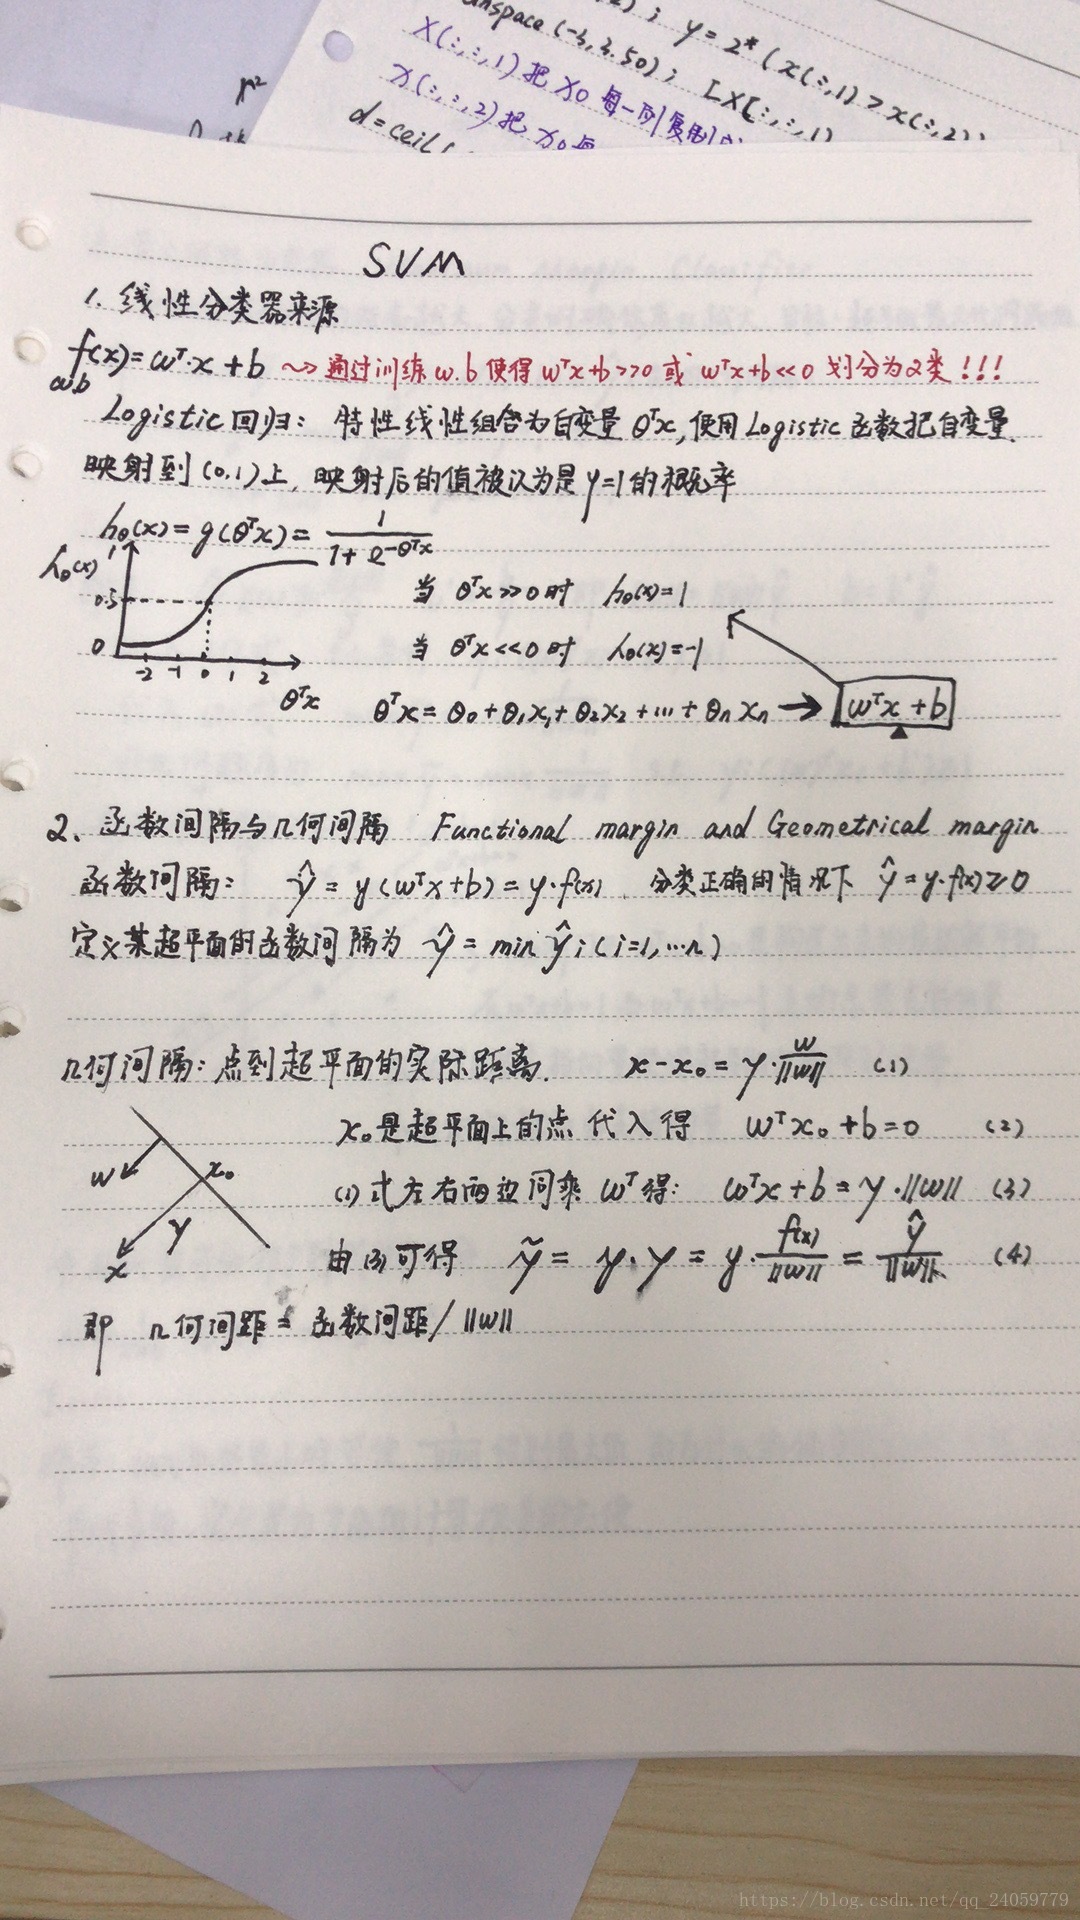 y=2*(x(:,1)>x(:,2);
X(:,:,1)把X0每一列复制
x(:,:,2)把x0每
d=ceil(
SVM
1. 线性分类器来源
f(x)=wᵀ·x+b ~> 通过训练w.b使得wᵀx+b>>0或 wᵀx+b<<0 划分为2类!!!
w b
Logistic回归: 特性线性组合为自变量θᵀx,使用Logistic函数把自变量
映射到(0,1)上,映射后的值被认为是y=1的概率
hθ(x)=g(θᵀx)=1/(1+e^(-θᵀx))
hθ(x) 1
0.5
0
-2 -1 0 1 2
θᵀx
当 θᵀx>>0时 hθ(x)=1
当 θᵀx<<0时 hθ(x)=-1
θᵀx=θ₀+θ₁x₁+θ₂x₂+…+θₙxₙ → wᵀx+b
2、函数间隔与几何间隔 Functional margin and Geometrical margin
函数间隔: ŷ=y(wᵀx+b)=y·f(x) 分类正确的情况下 ŷ=y·f(x)≥0
定义某超平面的函数间隔为 ŷ=min ŷi(i=1,…n)
几何间隔:点到超平面的实际距离. x-x₀=γ·w/‖w‖ (1)
x₀是超平面上的点 代入得 wᵀx₀+b=0 (2)
(1)式左右两边同乘 wᵀ得: wᵀx+b=γ·‖w‖ (3)
由(3)可得 γ̃=y·γ=y·f(x)/‖w‖=ŷ/‖w‖ (4)
w x₀
γ
x
即 几何间距=函数间距/‖w‖
https://blog.csdn.net/qq_24059779